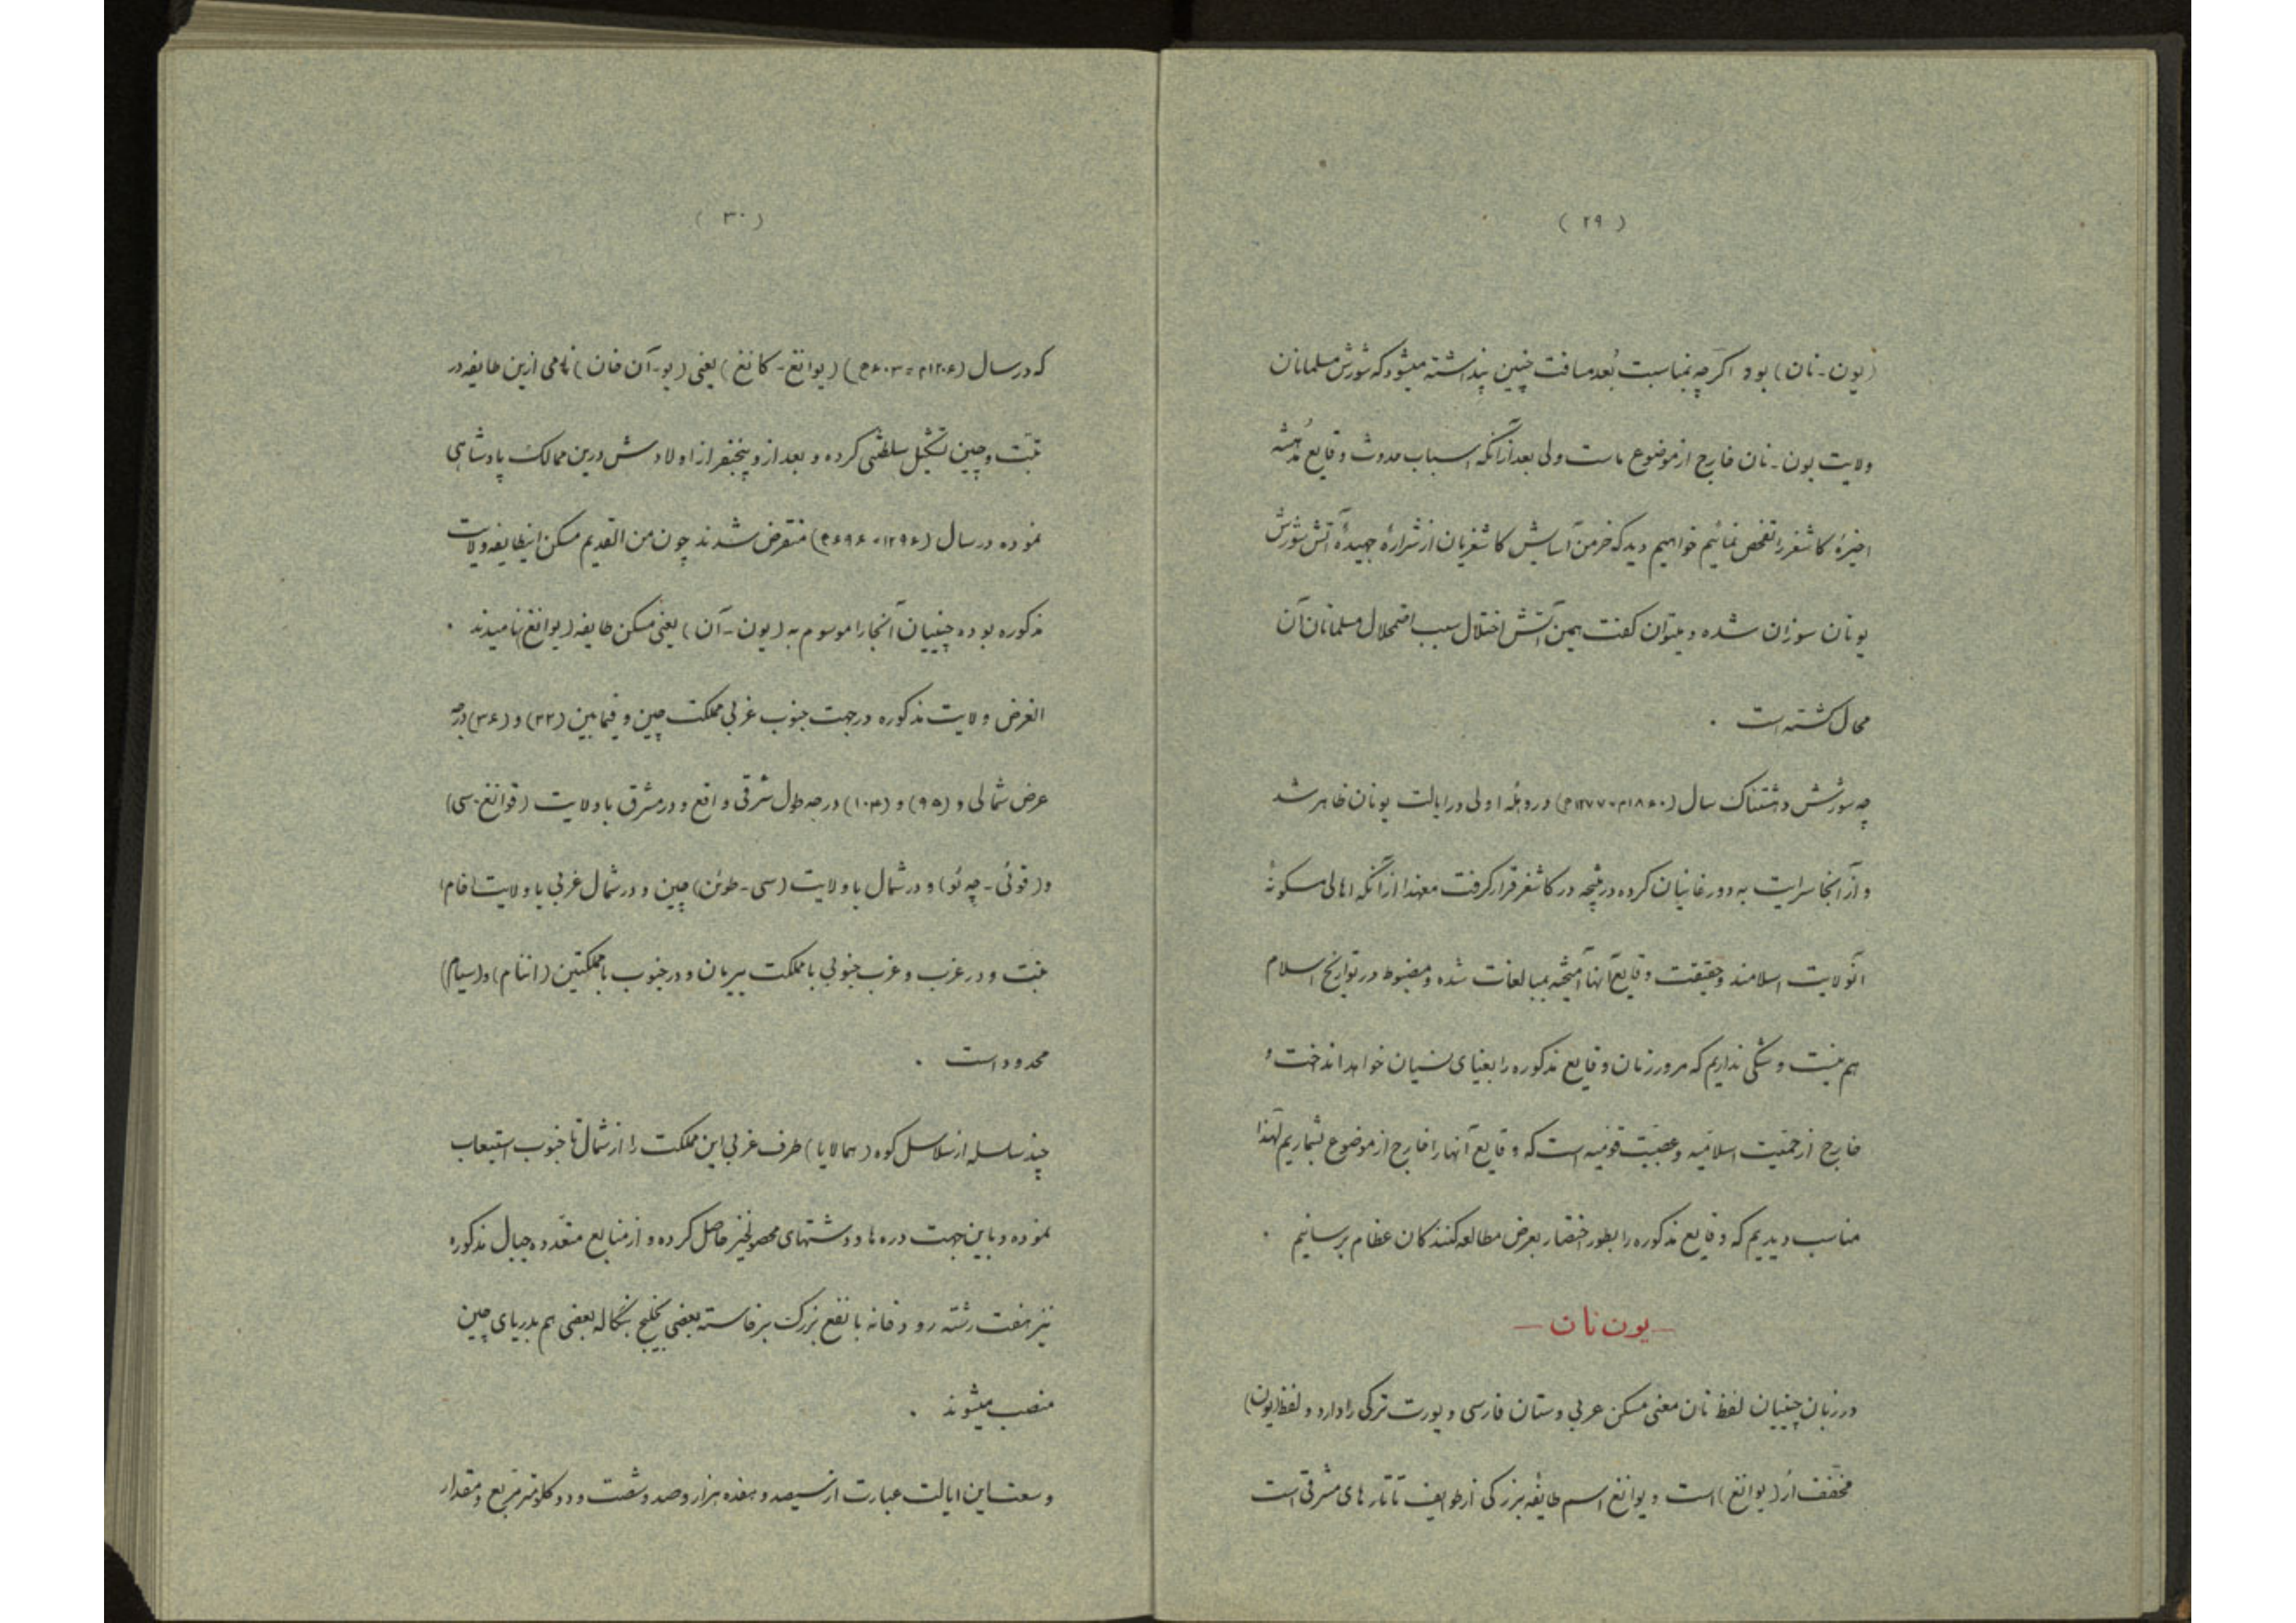 ( ۲۹ )
(یون-نان) بود اکرچه بمناسبت بُعد مسافت چنین پنداشته میشود که شورش مسلمانان
ولایت یون-نان خارج از موضوع ماست ولی بعد از آنکه اسباب حدوث وقایع مدهشه
اخیرهٔ کاشغر را تفحص نمائیم خواهیم دید که خرمن آسایش کاشغریان از شرارهٔ جهیدهٔ آتش شورش
یونان سوزان شده و میتوان کفت همین آتش اختلال سبب اضمحلال مسلمانان آن
محال کشته است .
چه شورش دهشتناک سال (۱۸۶۰م-۱۲۷۷ه) در وهلهٔ اولی در ایالت یونان ظاهر شد
و از آنجا سرایت به دورغانیان کرده در نتیجه در کاشغر قرار کرفت معهذا از آنکه اهالی مسکونهٔ
آنولایت اسلامند و حقیقت وقایع آنها آمیخته بمبالغات شده و مضبوط در تواریخ اسلام
هم نیست و شکی نداریم که مرور زمان وقایع مذکوره را بغیای نسیان خواهد انداخت و
خارج از حمیت اسلامیه و عصبیت قومیه است که وقایع آنها را خارج از موضوع بشماریم لهذا
مناسب دیدیم که وقایع مذکوره را بطور اختصار بعرض مطالعه کنندکان عظام برسانیم .
— یون نان —
در زبان چینیان لفظ نان معنی مسکن عربی و ستان فارسی و یورت ترکی را دارد و لفظ (یون)
مخفف از (یوانغ) است و یوانغ اسم طایفهٔ بزرکی از طوایف تاتارهای مشرقی است
( ۳۰ )
که در سال (۱۲۰۶م = ۶۰۳ه) (یوانغ-کانغ) یعنی (یو-آن خان) نامی ازین طایفه در
تبت و چین تشکیل سلطنتی کرده و بعد از و پنجنفر از اولادش درین ممالک پادشاهی
نموده در سال (۱۲۹۶-۶۹۶ه) منقرض شدند چون من القدیم مسکن اینطایفه ولایت
مذکوره بوده چینیان آنجا را موسوم به (یون-آن) یعنی مسکن طایفه (یوانغ) نامیدند .
الغرض ولایت مذکوره در جهت جنوب غربی مملکت چین و فیمابین (۲۲) و (۳۶) درجه
عرض شمالی و (۹۵) و (۱۰۳) درجه طول شرقی واقع و در مشرق با ولایت (قوانغ-سی)
و (قوئی-چه ئو) و در شمال با ولایت (سی-طوئن) چین و در شمال غربی با ولایت (خام)
تبت و در غرب و غرب جنوبی با مملکت بیرمان و در جنوب با مملکتین (اننام) و (سیام)
محدود است .
چند سلسله از سلاسل کوه (همالایا) طرف غربی این مملکت را از شمال تا جنوب استیعاب
نموده و باین جهت دره ها و دشتهای محصولخیز حاصل کرده و از منابع متعدده جبال مذکوره
نیز هفت رشته رودخانه با نفع بزرک برخاسته بعضی بخلیج بنکاله بعضی هم بدریای چین
منصب میشوند .
وسعت این ایالت عبارت از سیصد و هفده هزار و صد و شصت و دو کلومتر مربع و مقدار